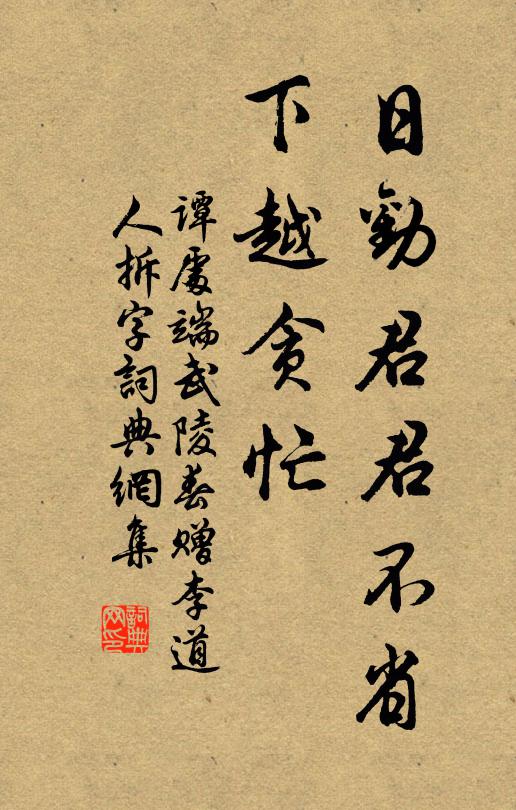 日勸君君不省
下越貪忙
譚處端武陵春赠李道
人拆字詞典網集
詞典
网印